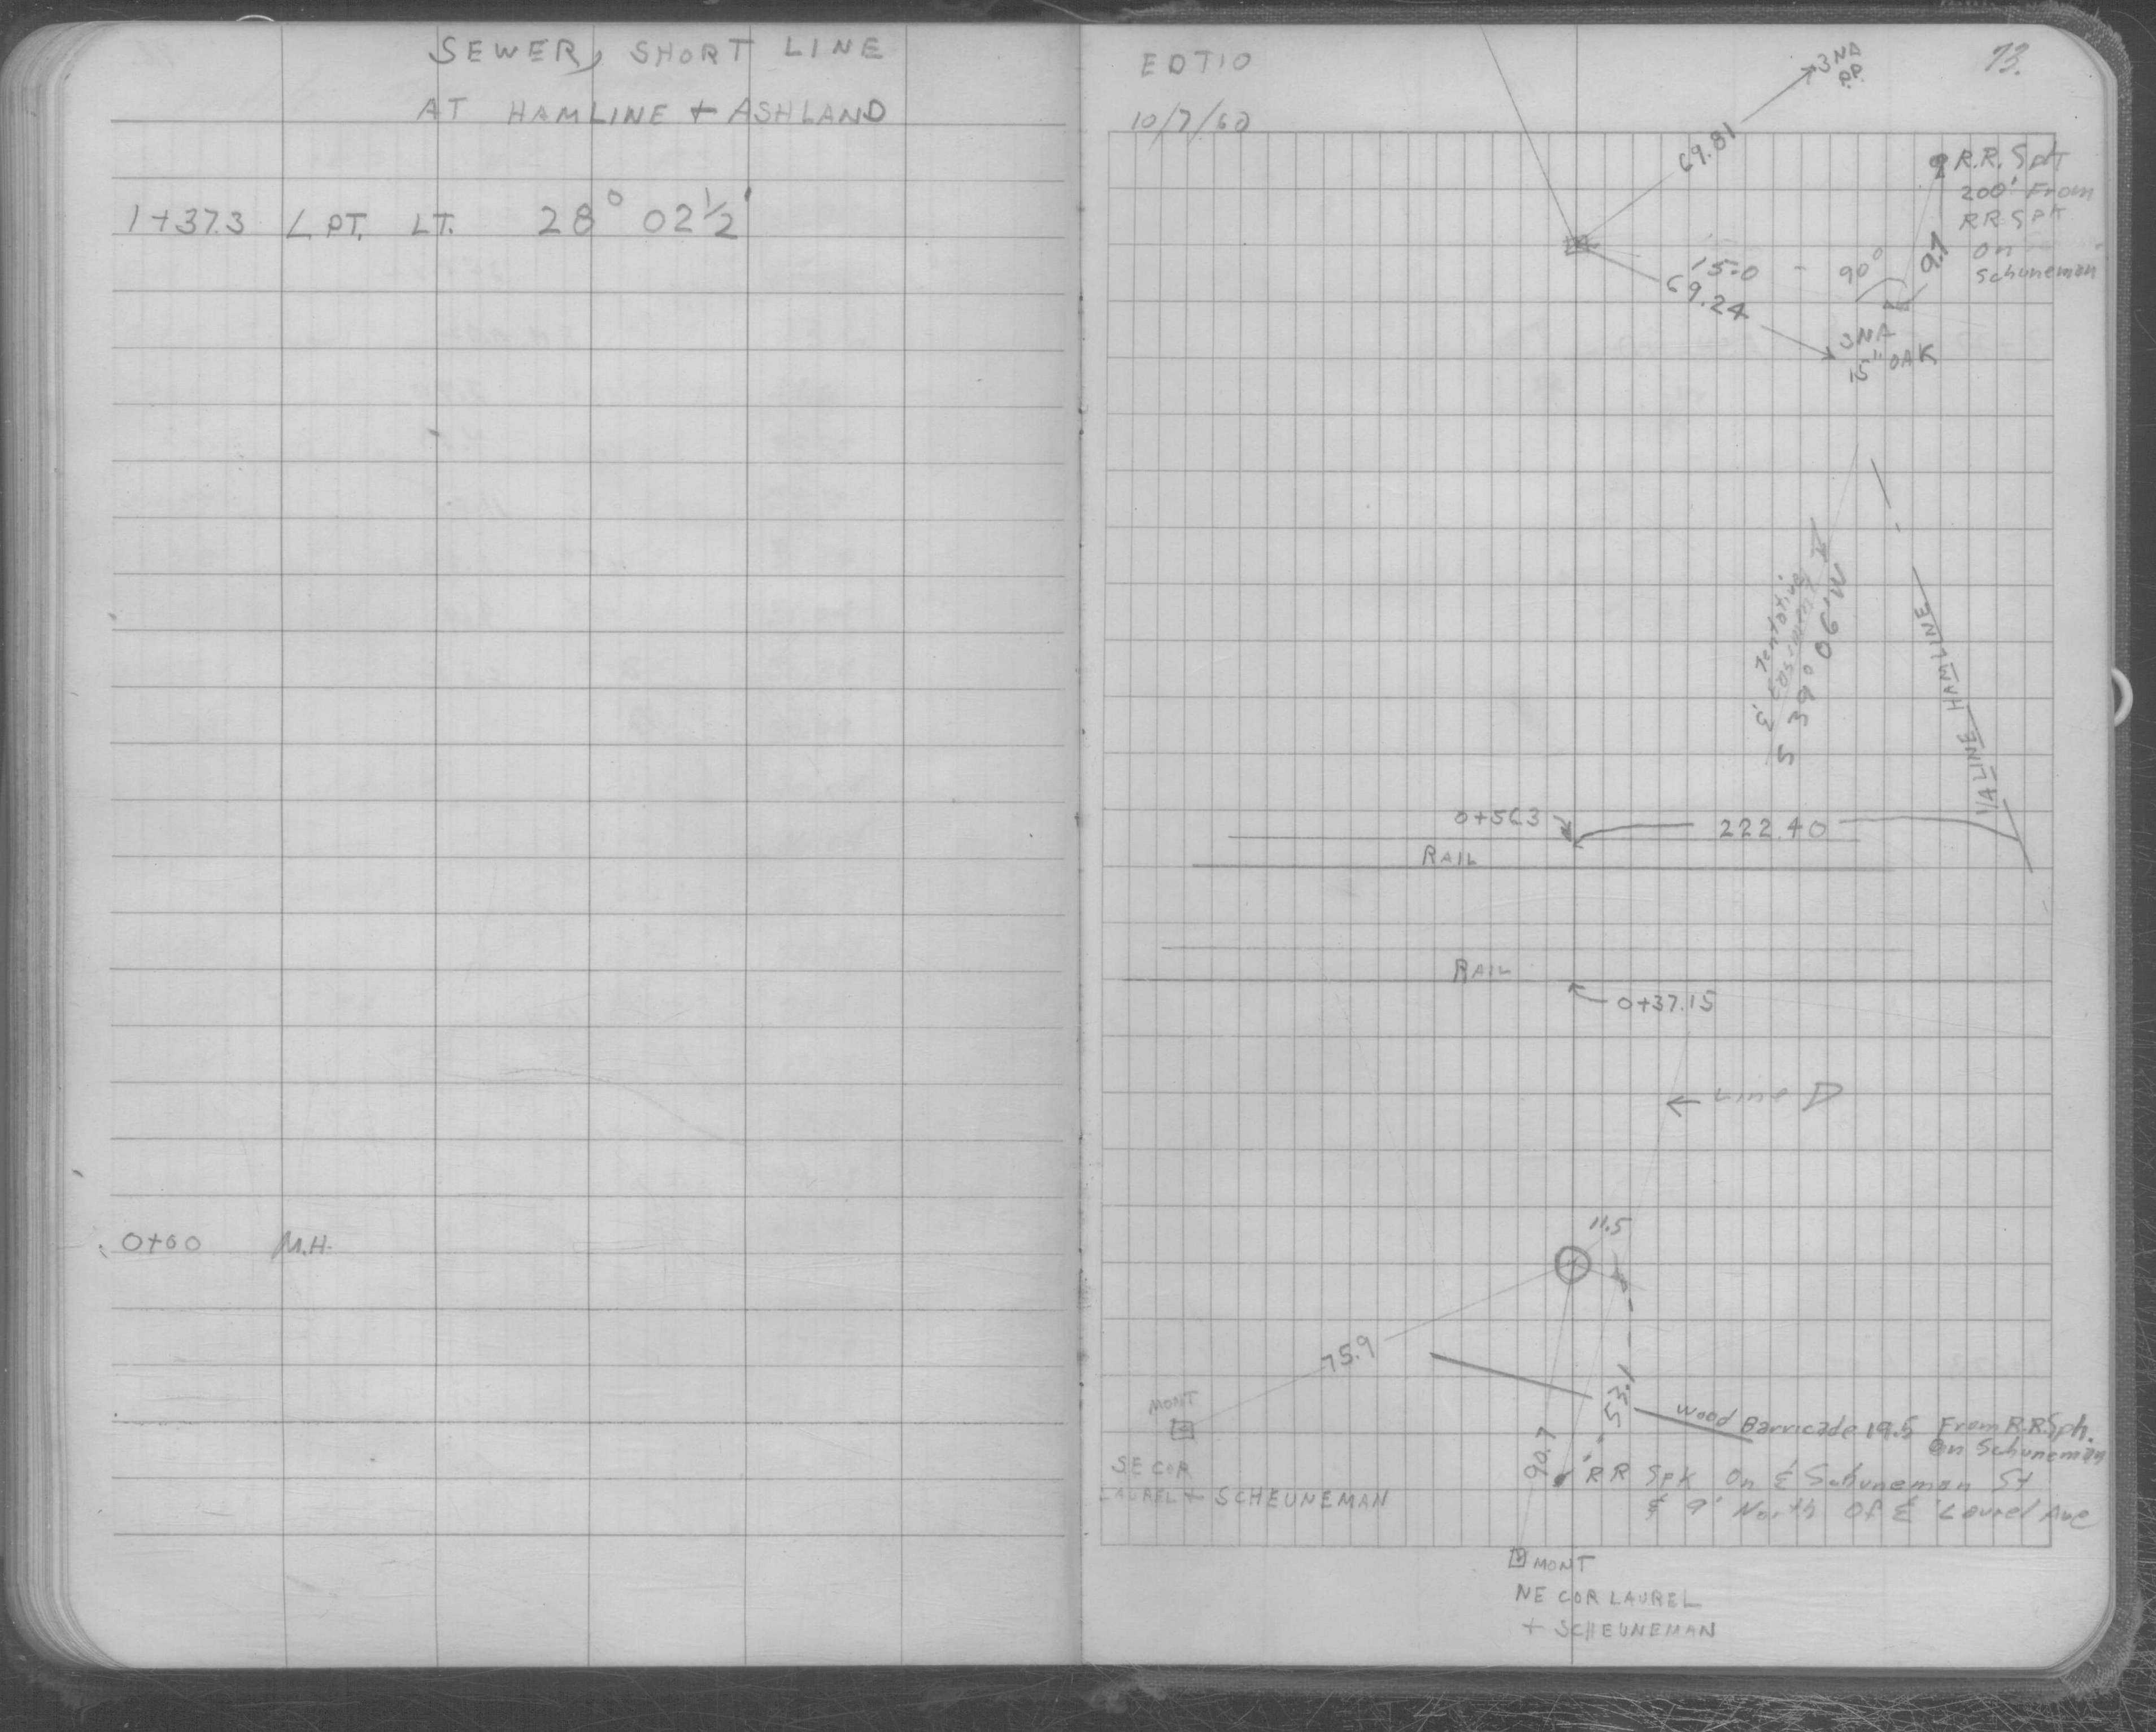 SEWER, SHORT LINE
AT HAMLINE + ASHLAND
1+37.3 ∠ PT. LT. 28° 02½'
0+00 M.H.
EDT10
10/7/60
73.
3NA
P.P.
69.81
R.R. Spk
200' From
RR Spk
on
Schuneman
9.7
15.0 - 90°
69.24
3NA
15" OAK
℄ Tentative
Easement
S 39° 06' W
HAMLINE
VALINE
0+56.3
222.40
RAIL
RAIL
0+37.15
← Line D
11.5
75.9
53.1
90.7
MONT
SE COR
LAUREL + SCHEUNEMAN
Wood Barricade 19.5 From R.R.Spk.
on Schuneman
RR Spk On ℄ Schuneman St
& 9' North Of ℄ Laurel Ave
MONT
NE COR LAUREL
+ SCHEUNEMAN